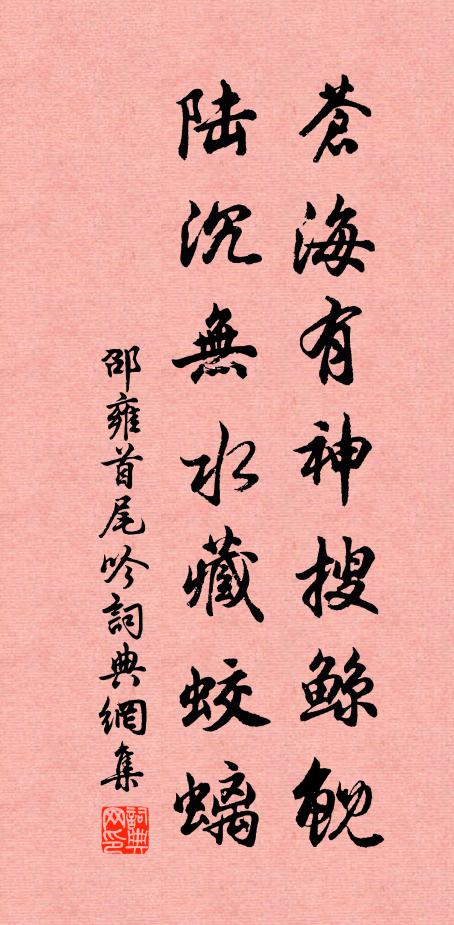 蒼海有神搜鯨鯢
陸沉無水藏蛟螭
邵雍首尾吟詞典網集
詞典网印